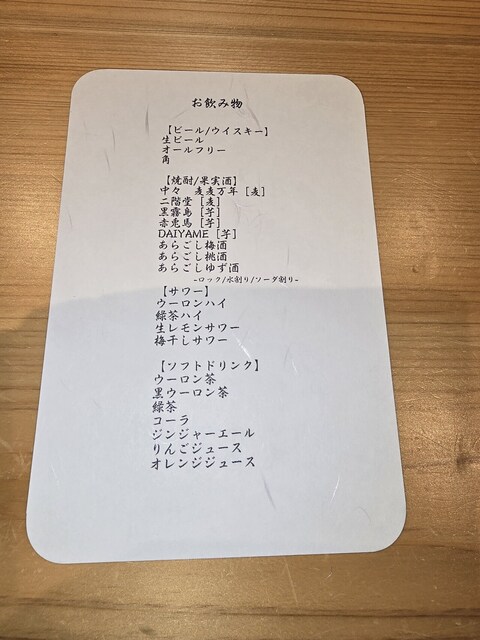 お飲み物
【ビール/ウイスキー】
生ビール
オールフリー
角
【焼酎/果実酒】
中々 麦麦万年［麦］
二階堂［麦］
黒霧島［芋］
赤兎馬［芋］
DAIYAME［芋］
あらごし梅酒
あらごし桃酒
あらごしゆず酒
-ロック/水割り/ソーダ割り-
【サワー】
ウーロンハイ
緑茶ハイ
生レモンサワー
梅干しサワー
【ソフトドリンク】
ウーロン茶
黒ウーロン茶
緑茶
コーラ
ジンジャーエール
りんごジュース
オレンジジュース